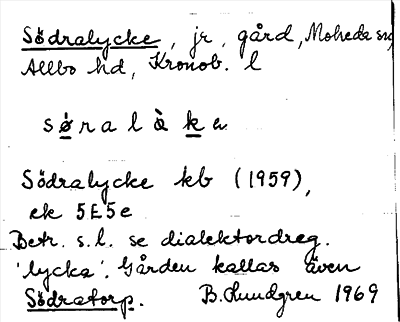 Södralycke, jr, gård, Moheda sn,
Allbo hd, Kronob. l
søralàka
Södralycke kb (1959),
ek 5E5e
Betr. s.l. se dialektordreg.
'lycka'. Gården kallas även
Södratorp. B. Lundgren 1969